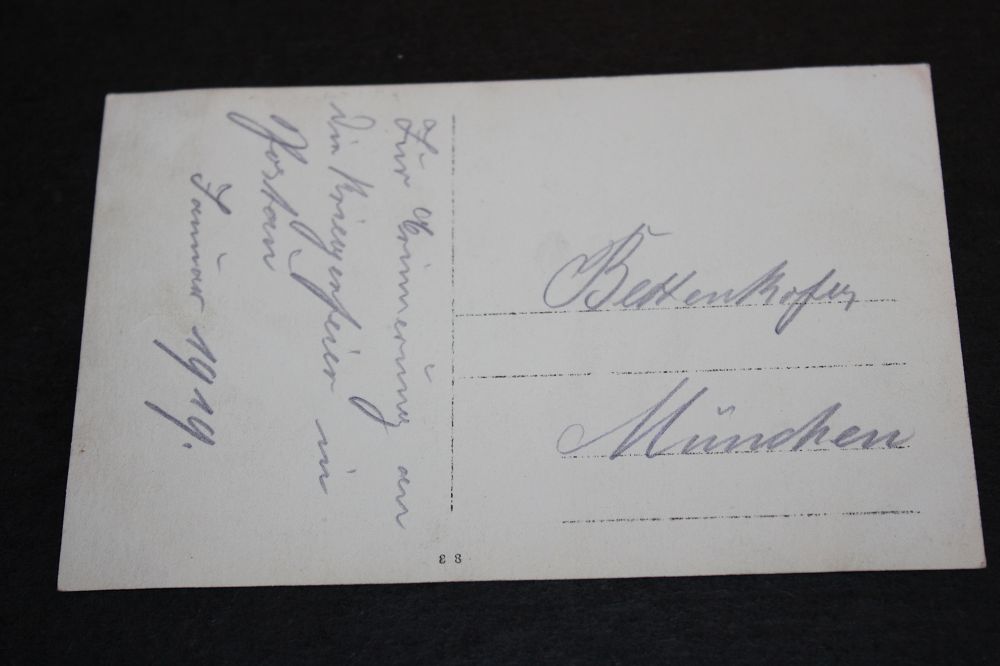 Zur Erinnerung an
die Kriegerfeier in
Januar 1919.
Bettenkofer
München
8 3